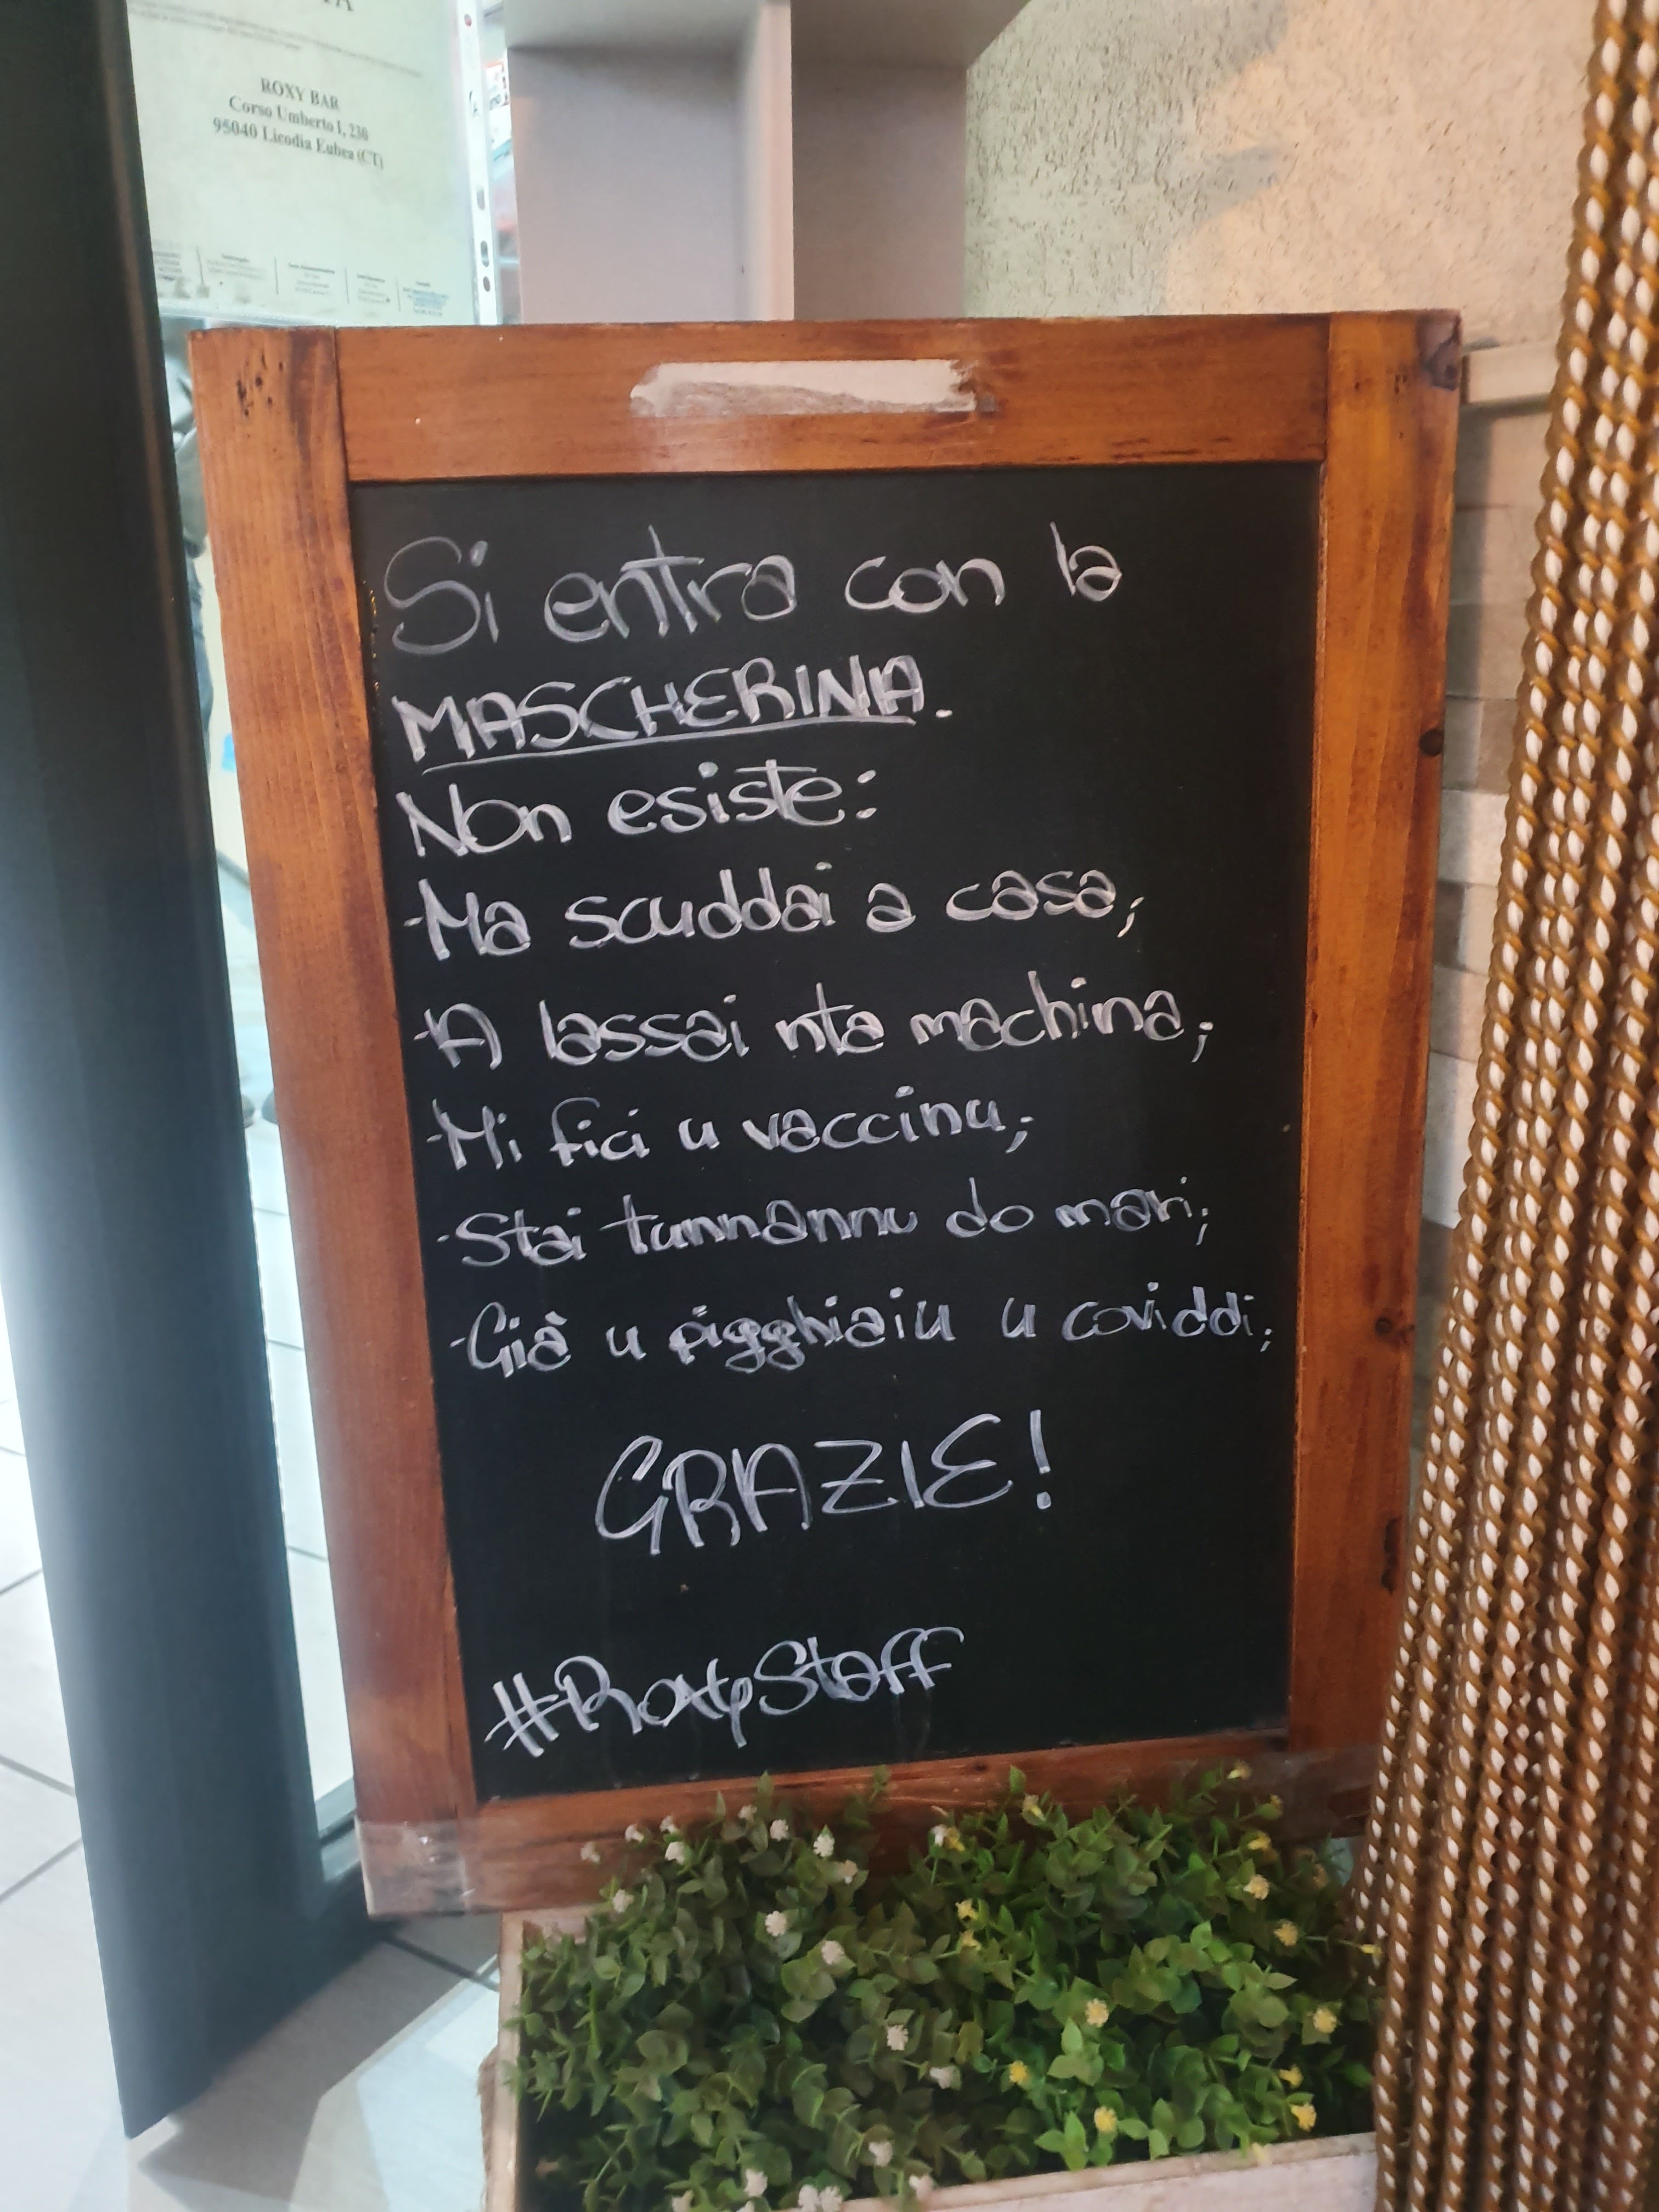 ROXY BAR
Corso Umberto I, 230
95040 Licodia Eubea (CT)
Si entra con la
MASCHERINA.
Non esiste:
-Ma scuddai a casa;
-A lassai nta machina;
-Mi fici u vaccinu;
-Stai tunnannu do mari;
-Già u pigghiaiu u coviddi;
GRAZIE!
#RoxyStaff